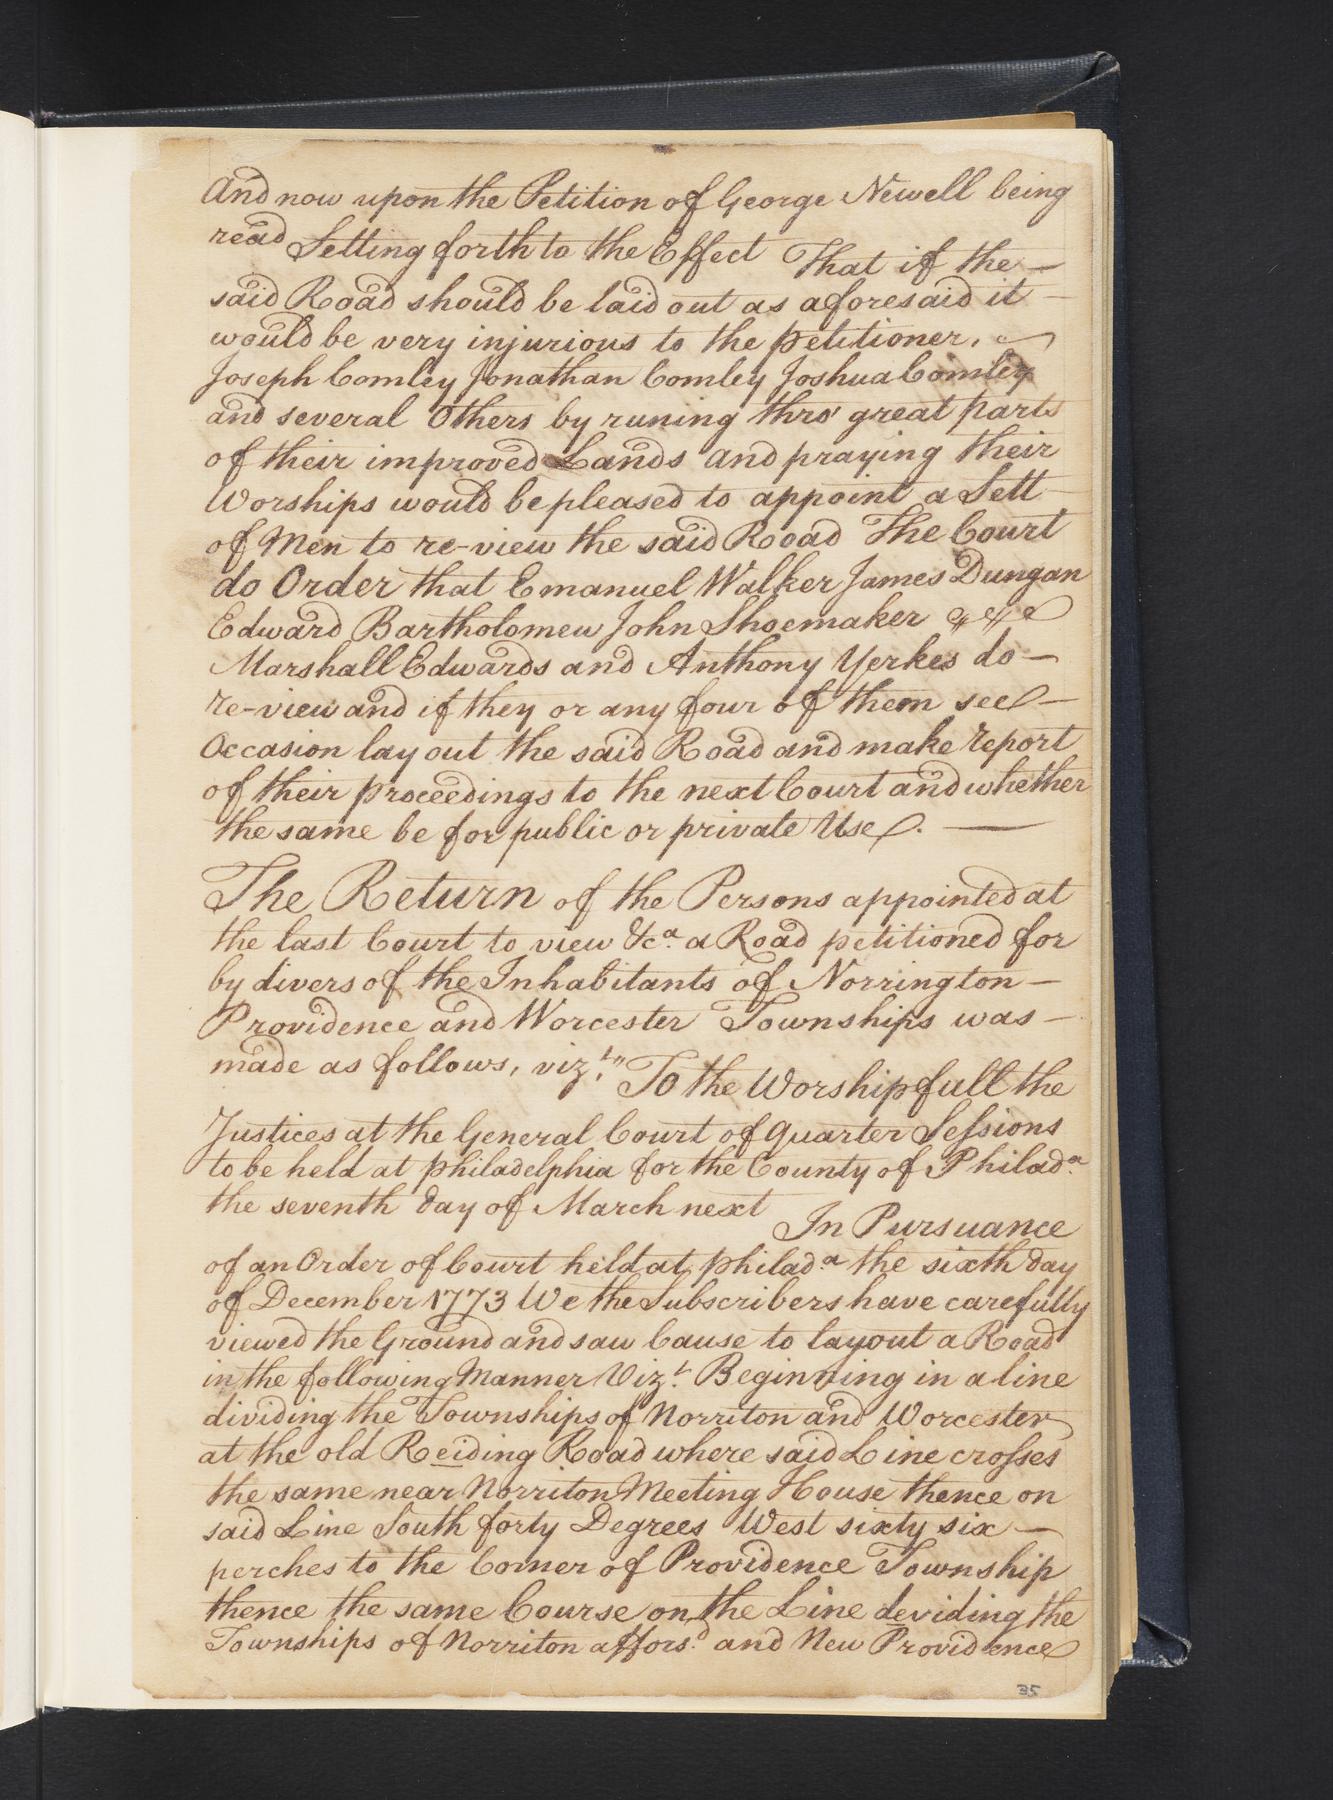 And now upon the Petition of George Newell being
read Setting forth to the Effect That if the —
said Road should be laid out as aforesaid it —
would be very injurious to the petitioner,
Joseph Comley Jonathan Comley Joshua Comley
and several Others by runing thro' great parts
of their improved Lands and praying their
Worships would be pleased to appoint a Sett
of Men to re-view the said Road The Court
do Order that Emanuel Walker James Dungan
Edward Bartholomew John Shoemaker
Marshall Edwards and Anthony Yerkes do —
re-view and if they or any four of them see —
Occasion lay out the said Road and make report
of their proceedings to the next Court and whether
the same be for public or private Use. —
The Return of the Persons appointed at
the last Court to view &c.a a Road petitioned for
by divers of the Inhabitants of Norrington —
Providence and Worcester Townships was —
made as follows, viz.t" To the Worshipfull the
Justices at the General Court of quarter Seſsions
to be held at philadelphia for the County of Philad.a
the seventh day of March next In Pursuance
of an Order of Court held at philad.a the sixth day
of December 1773 We the Subscribers have carefully
viewed the Ground and saw Cause to layout a Road
in the following Manner Viz.t Beginning in a line
dividing the Townships of Norriton and Worcester
at the old Reiding Road where said Line croſses
the same near Norriton Meeting House thence on
said Line South forty Degrees West sixty six —
perches to the Corner of Providence Township
thence the same Course on the Line deviding the
Townships of Norriton affors.d and New Providence
35